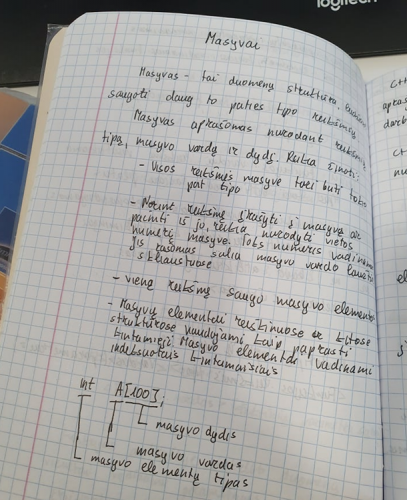 logitech
Masyvai
Masyvas - tai duomenų struktūra,
saugoti daug to paties tipo reikšmių
Masyvas aprašomas nurodant reikšmių
tipą, masyvo vardą ir dydį. Reikia žinoti:
- Visos reikšmės masyve turi būti tokio
pat tipo
- Norint reikšmę įrašyti į masyvą ar
paimti iš jo, reikia nurodyti vietos
numerį masyve. Toks numeris vadinamas
Jis rašomas šalia masyvo vardo
skliaustuose
- vieną reikšmę saugo masyvo elementas
- Masyvų elementai reiškiniuose ar kitose
struktūrose naudojami kaip paprasti
kintamieji Masyvo elementai vadinami
indeksuotais kintamaisiais
int A[100];
masyvo dydis
masyvo vardas
masyvo elementų tipas
C++